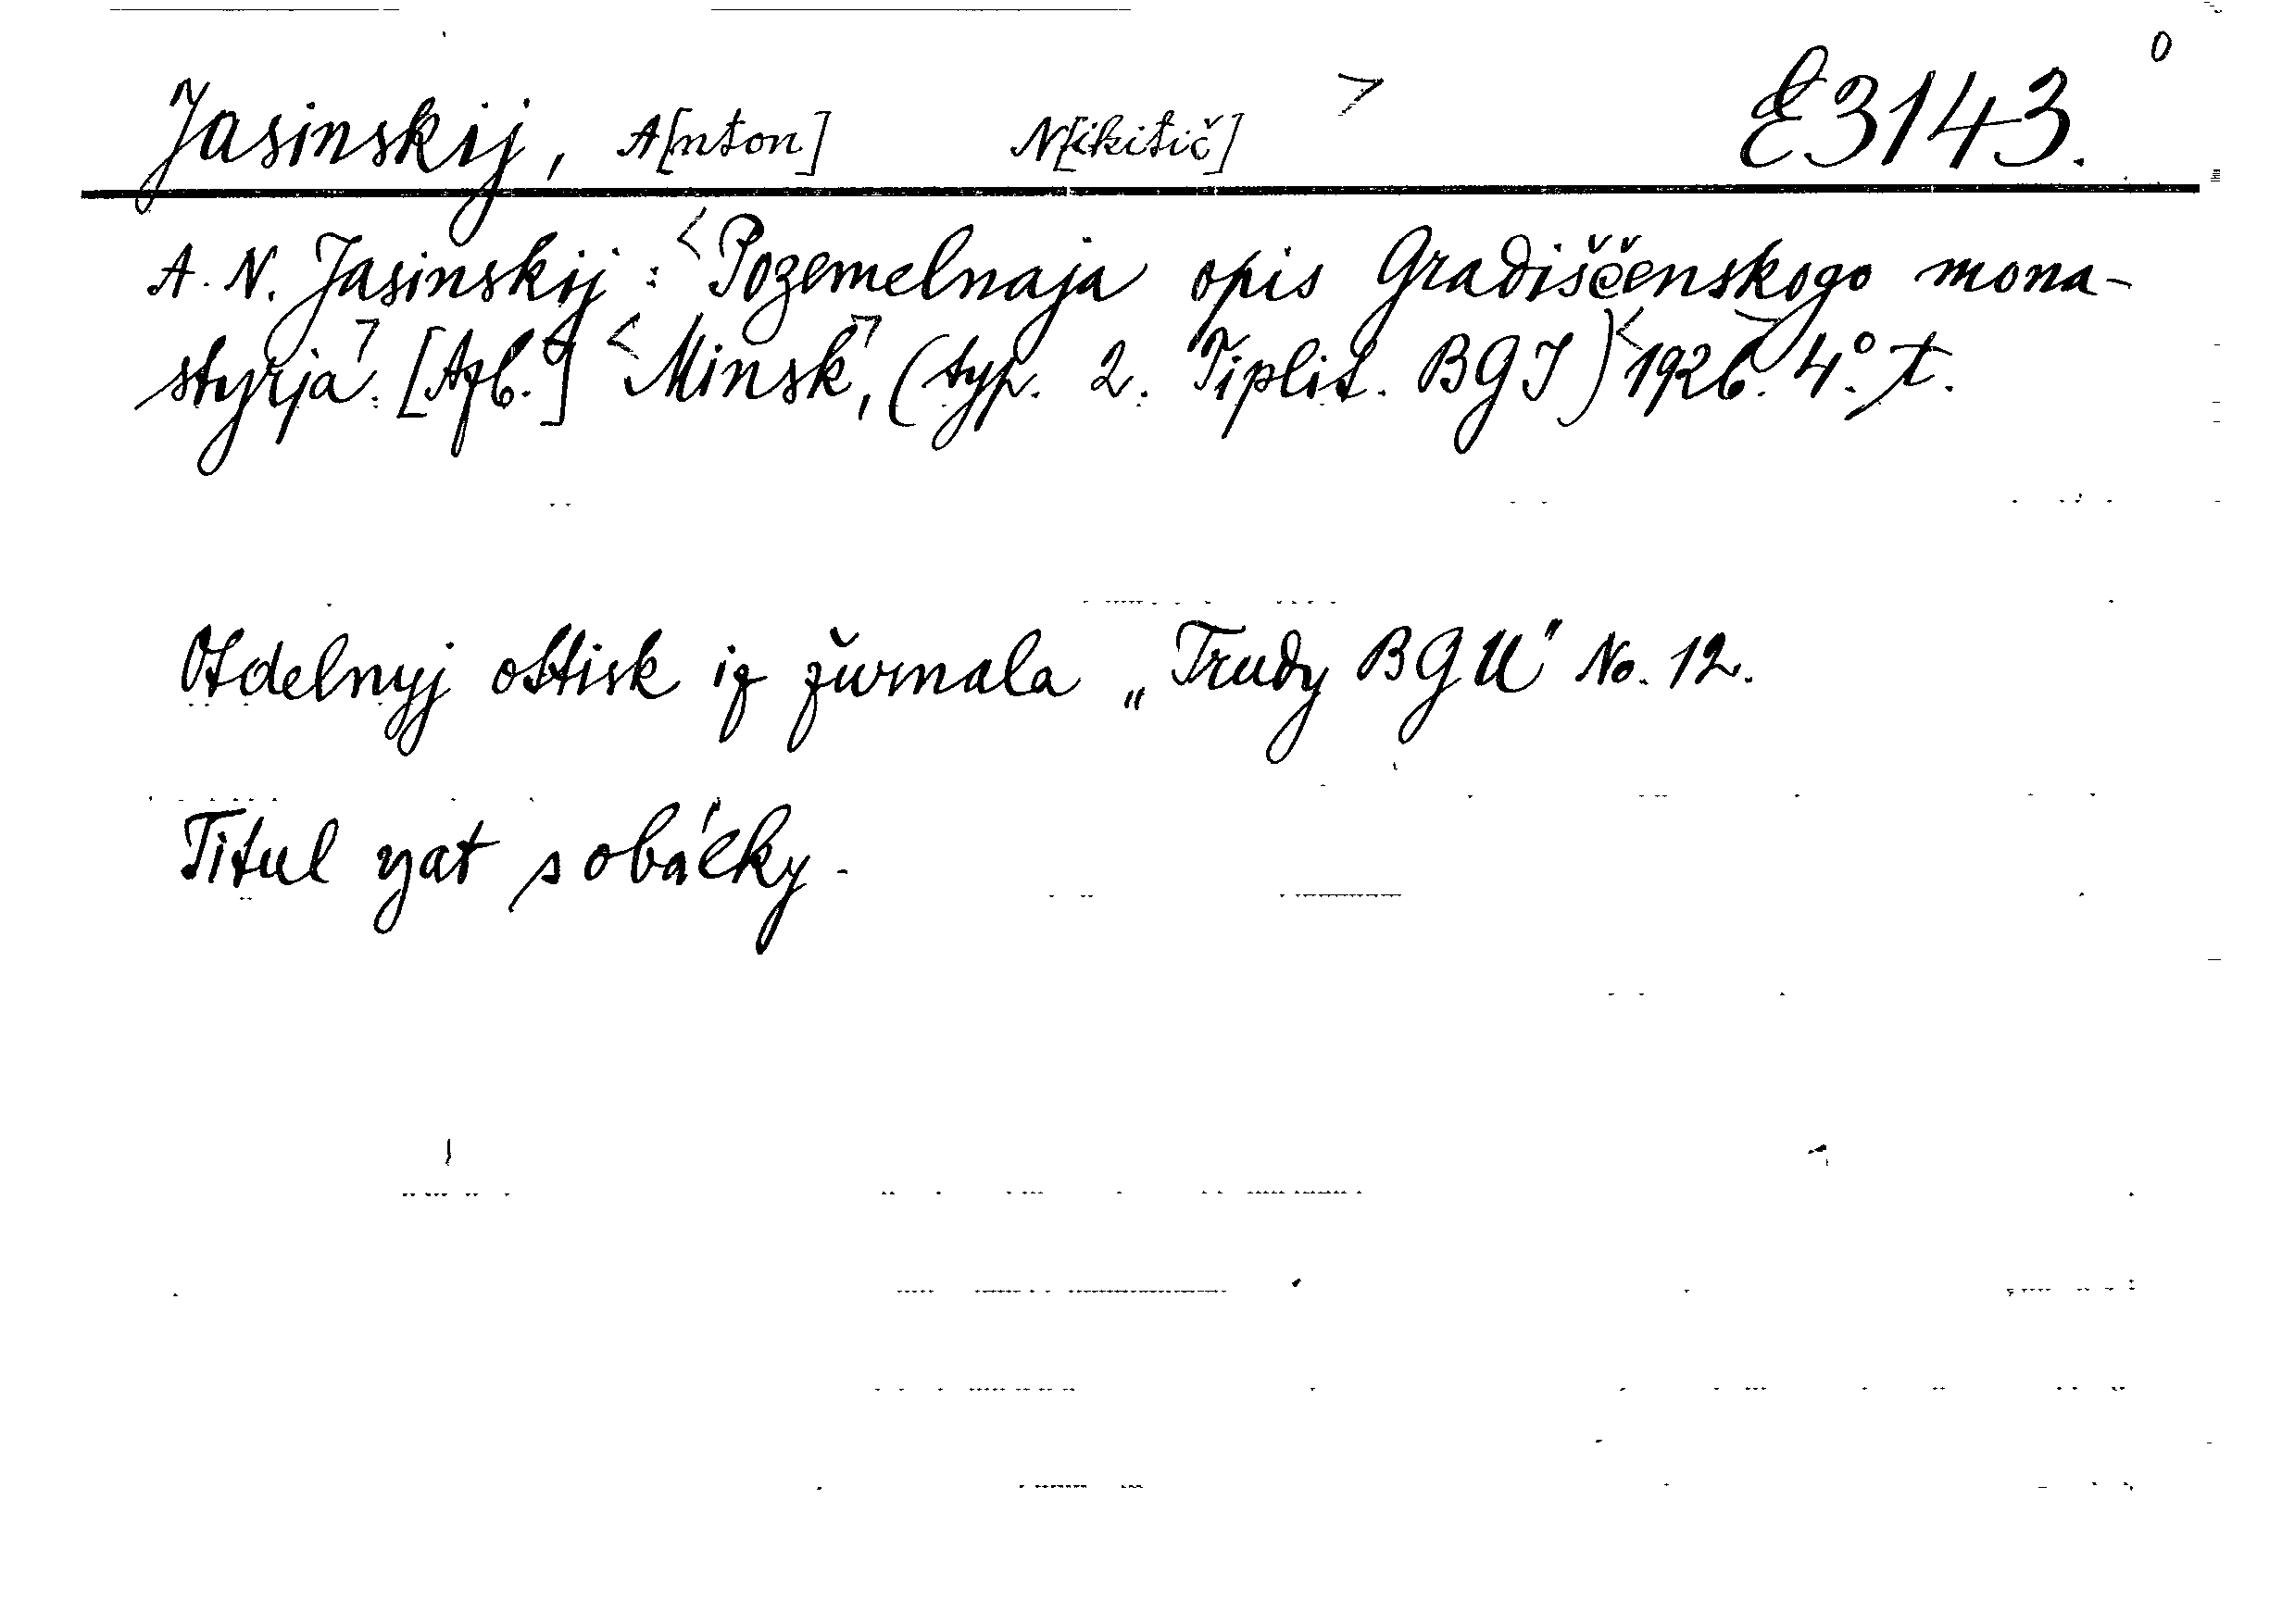 Jasinskij, A[nton] N[ikitič] > E 3143. 0
A. N. Jasinskij: <Pozemelnaja opis Gradiščenskogo mona-
styrja>. [Azb.] <Minsk>, (typ. 2. Tiplit. BGI) <1926>. 4°. t.
Otdelnyj ottisk iz žurnala „Trudy BGU" No. 12.
Titul vzat s obálky.